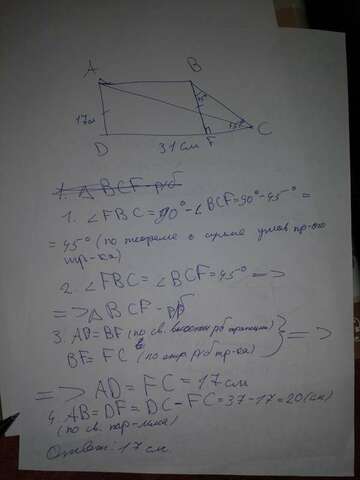 A B
17см 45°
45° C
D 31см F
1. △ BCF - р/б
1. ∠FBC = 90° - ∠BCF = 90° - 45° =
= 45° (по теореме о сумме углов пр-ого
тр-ка)
2. ∠FBC = ∠BCF = 45° =>
=> △ BCF - р/б
3. AD = BF (по св. высоты трапеции)
BF = FC (по опр р/б тр-ка) } =>
=> AD = FC = 17 см
4. AB = DF = DC - FC = 37 - 17 = 20 (см)
(по св. пар-мма)
Ответ: 17 см